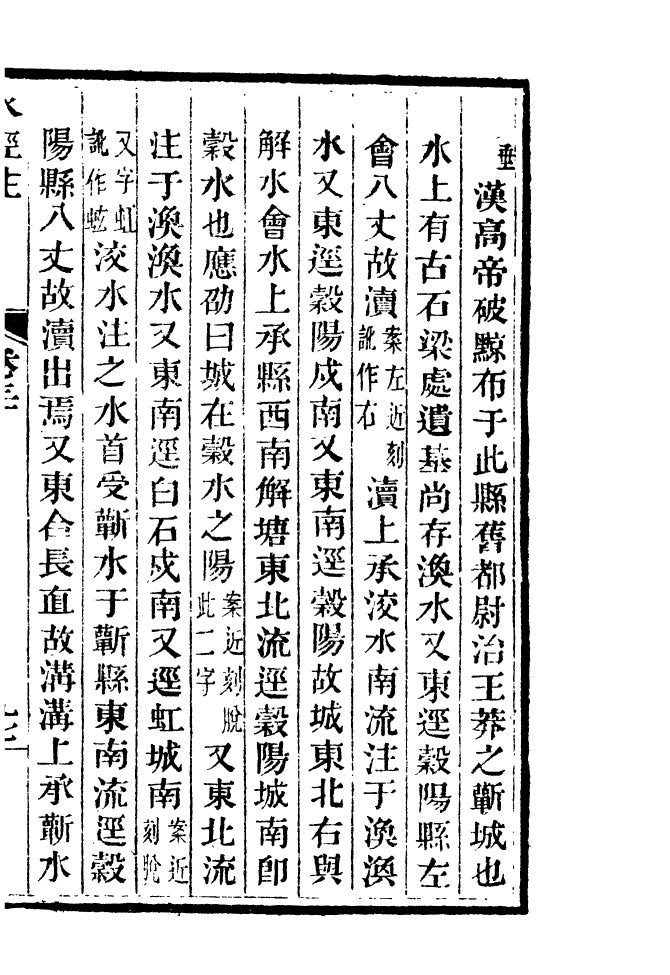 漢高帝破黥布于此縣舊都尉治王莽之蘄城也
水上有古石梁處遺基尚存渙水又東逕穀陽縣左
會八丈故瀆案左近刻訛作右瀆上承洨水南流注于渙渙
水又東逕穀陽戍南又東南逕穀陽故城東北右與
解水會水上承縣西南解塘東北流逕穀陽城南卽
穀水也應劭曰城在穀水之陽案近刻脫此二字又東北流
注于渙渙水又東南逕白石戍南又逕虹城南案近刻脫
又字虹訛作洨水注之水首受蘄水于蘄縣東南流逕穀
陽縣八丈故瀆出焉又東合長直故溝溝上承蘄水
水經注
卷三十